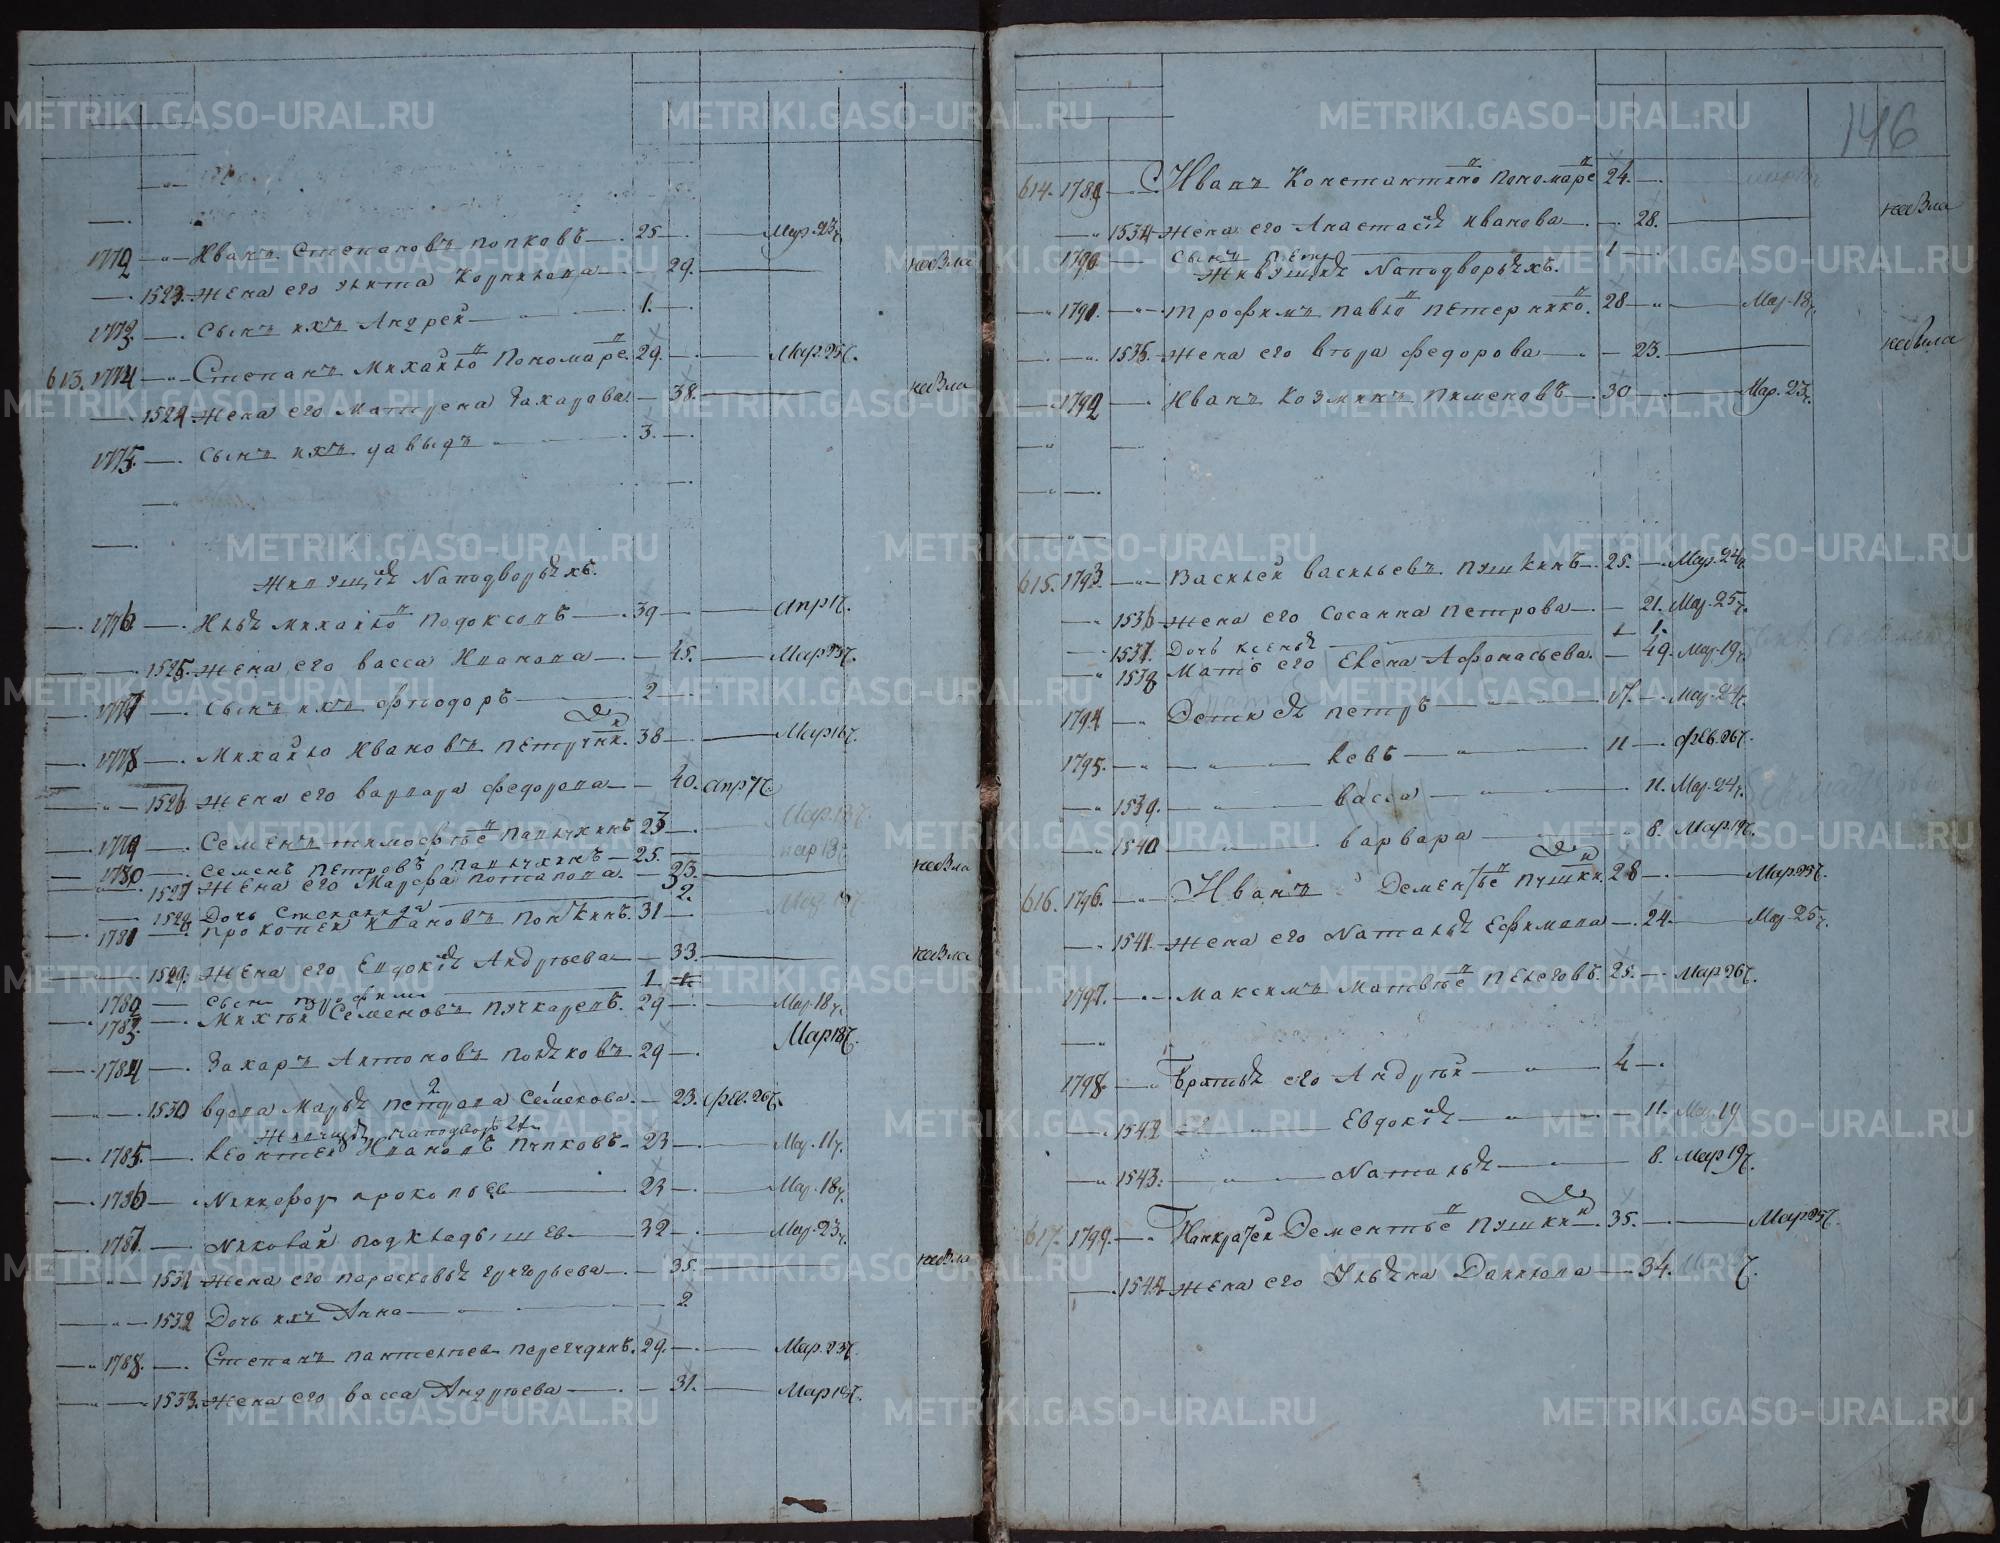 1772 Иванъ Степановъ Попковъ 25 Мар. 23ч.
1523. Жена его Улита Корнилова 29. небыла
1773. Сынъ ихъ Андрей 1.
613. 1774 Степанъ Михайло Пономаре 29. Мар. 25ч.
1524 Жена его Матрена Захарова 38. небыла
1775. Сынъ ихъ Давыдъ 3.
Живущия Наподворьяхъ.
1776 Илья Михайло 39 Апр 1ч.
1525. Жена его Васса Иванова 45. Мар 23ч.
1777 Сынъ ихъ Фѣодоръ 2
1778 Михайло Ивановъ 38 Мар 16ч.
1526 Жена его Варвара Федорова 40. Апр
1779 Семенъ Тимофѣе 23 Мар.
1780 Семенъ Петровъ 25. мар 18ч
1527 Жена его Марфа Потапова 23. небыла
1528 Дочь Степанида 2.
1781 Прокопей Ивановъ 31
1529. Жена его Евдокия Андрѣева 33. небыла
1782 Сынъ Трофимъ 1
1783. Михѣй Семеновъ 29 Мар 18ч.
1784 Захаръ Антоновъ 29 Мар 18ч.
1530 вдова Марья Петрова Семенова. 23. Фев. 26ч.
Живущия Наподворьях
1785. Леонтей Ивановъ 23 Мар. 11ч.
1786 Никифор Прокопьев 23 Мар. 18ч.
1787. Николай Подкладышев 32 Мар. 23ч.
1531 Жена его Парасковья Григорьева 35. небыла
1532 Дочь ихъ Анна 2
1788. Степанъ Пантелѣев 29. Мар. 23ч.
1533. Жена его Васса Андрѣева 31. Мар
146
614. 1789 Иванъ Константино Пономаре 24.
1534 Жена его Анастасия Иванова 28. небыла
1790 Сынъ Петр 1
Живущия Наподворьяхъ.
1791. Трофимъ Павло 28 Мар. 18ч.
1535. Жена его Вѣра Федорова 23. небыла
1792 Иванъ Козминъ Пименовъ 30 Мар. 23ч.
615. 1793 Василей Васильевъ Пушкинъ 25. Мар. 24ч.
1536 Жена его Сосанна Петрова 21. Мар. 25ч.
1537. Дочь Ксенья 1.
1538 Мать его Елена Афонасьева. 49. Мар. 19ч.
1794 Дети ея Петръ Мар. 24ч.
1795. Левъ 11 Фев. 26ч.
1539. Васса 11. Мар. 24ч.
1540 Варвара 8. Мар. 19ч.
616. 1796. Иванъ Дементье Пушки 28 Мар. 25ч.
1541. Жена его Наталья Ефимова 24. Мар. 25ч.
1797. Максимъ Матвѣе 25. Мар. 26ч.
1798. Братья его Андрѣй 4
1542 Евдокия 11. Мар. 19
1543. Наталья 8. Мар 19ч.
617. 1799. Панкратей Дементье Пушки 35. Мар. 25ч.
1544 Жена его Ульяна Данилова 34.